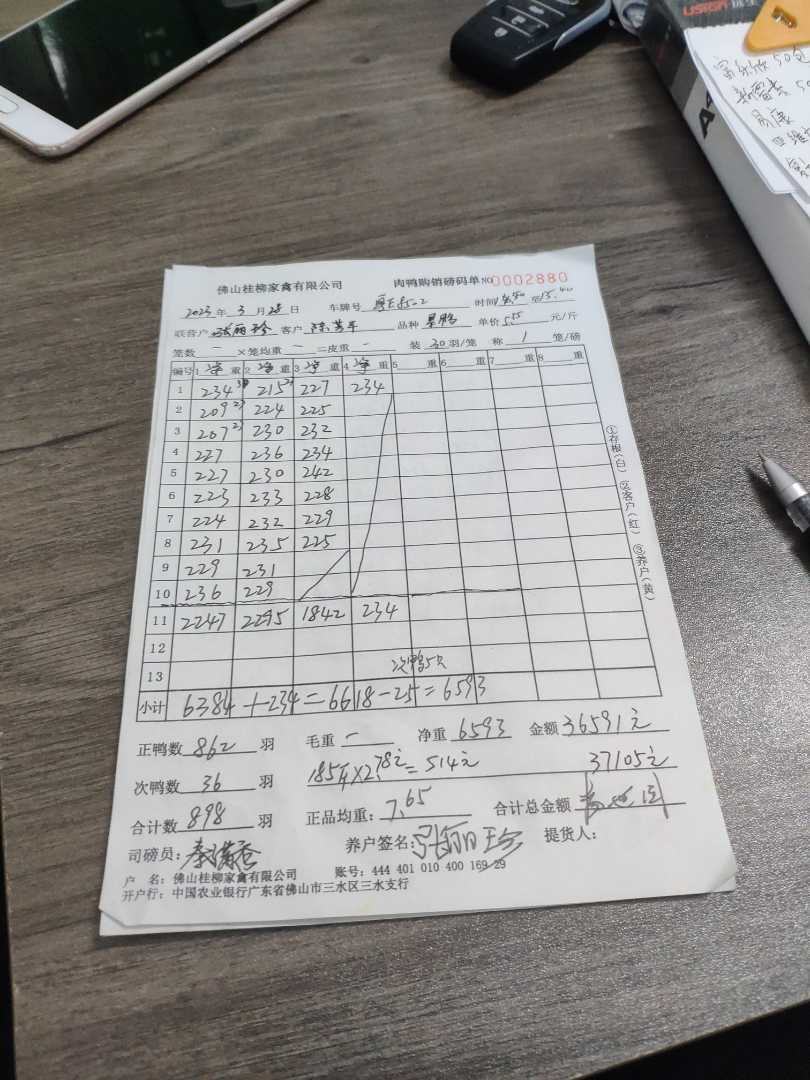 佛山桂柳家禽有限公司 肉鸭购销磅码单 NO 0002880
2023年 3月 28日 车牌号 时间
联营户 张丽珍 客户 品种 单价 5.55 元/斤
笼数 一 ×笼均重 一 =皮重 一 装 30 羽/笼 称 1 笼/磅
编号 1 净 重 2 净 重 3 净 重 4 净 重 5 重 6 重 7 重 8 重
1 234 215 227 234
2 209 224 225
3 207 230 232
4 227 236 234
5 227 230 242
6 223 233 228
7 224 232 229
8 231 235 225
9 229 231
10 236 229
11 2247 2295 1842 234
12
13 次鸭5只
小计 6384+234=6618-25=6593
正鸭数 862 羽 毛重 一 净重 6593 金额 36591元
次鸭数 36 羽 185斤×2.78元=514元 37105元
合计数 898 羽 正品均重: 7.65 合计总金额
司磅员: 养户签名: 张丽珍 提货人:
户 名: 佛山桂柳家禽有限公司 账号: 444 401 010 400 169 29
开户行: 中国农业银行广东省佛山市三水区三水支行
①存根(白) ②客户(红) ③养户(黄)
A4